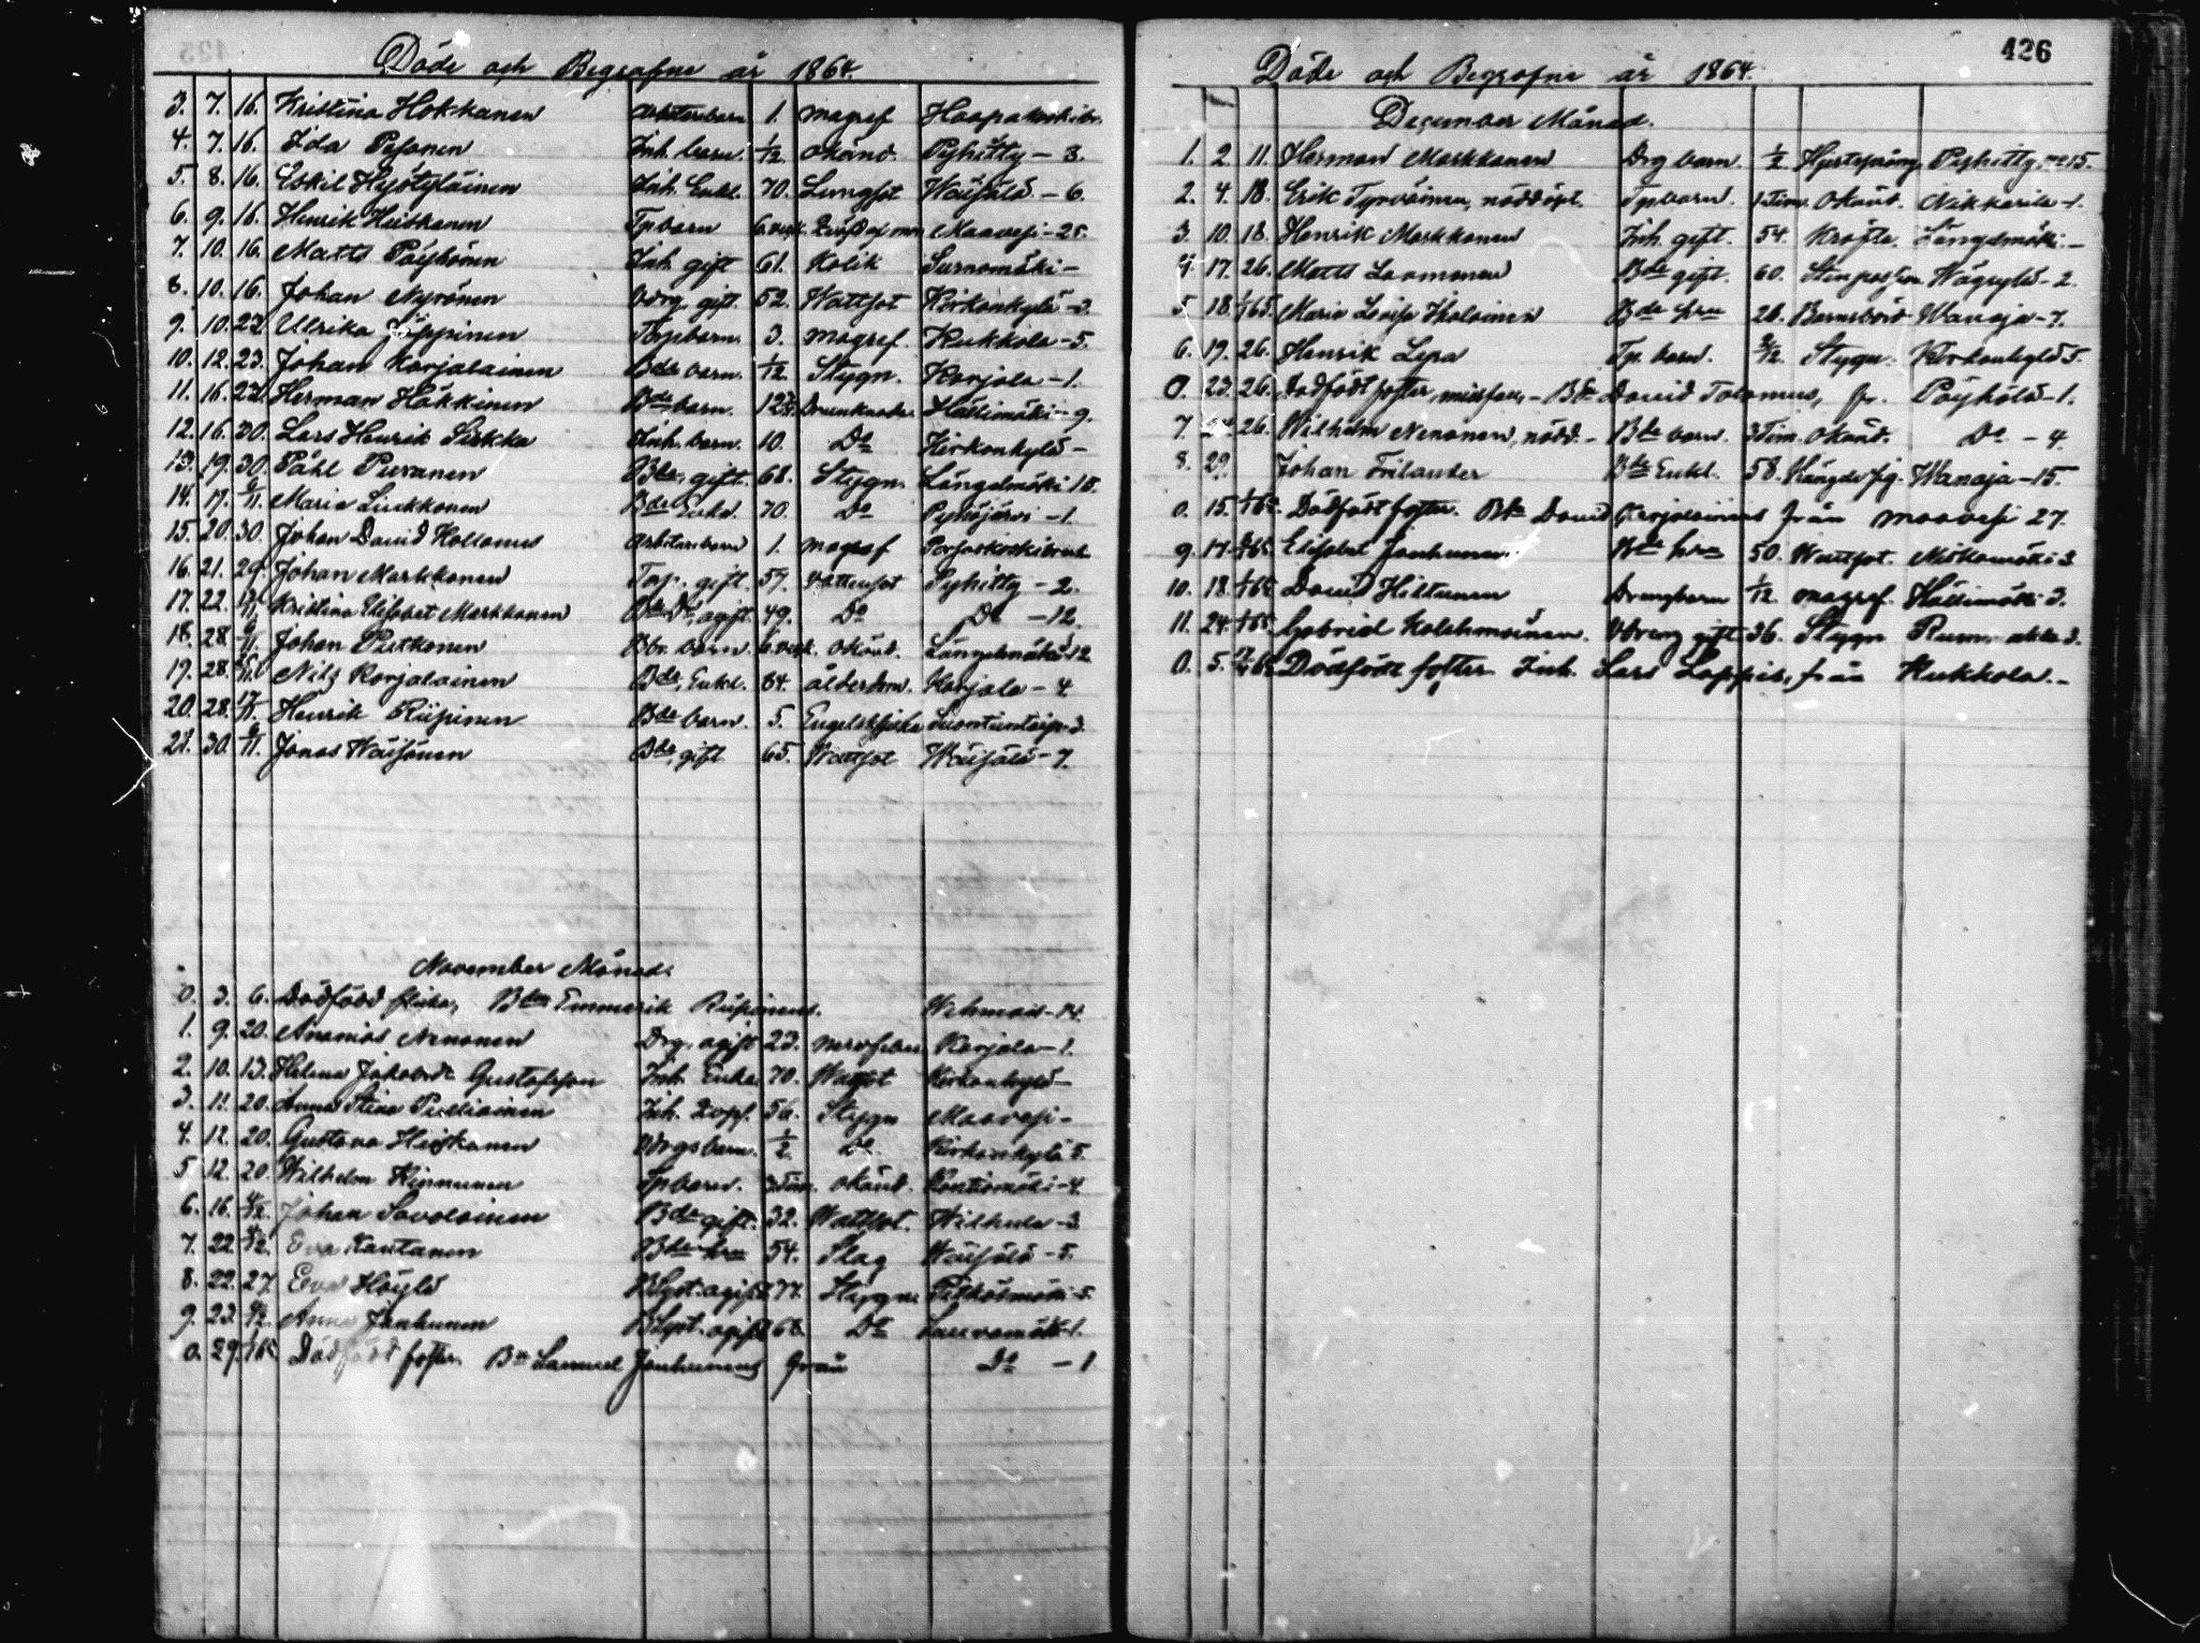 Döde och Begrafne år 1864.
3. 7. 16. Kristina Hokkanen arbetarebarn 1. magref Haapakoski br.
4. 7. 16. Ida Pesonen Inh. barn. 1/12. okänd. Pyhitty - 3.
5. 8. 16. Eskil Hyötyläinen Inh. Enkl. 70. Lungsot Wäisälä - 6.
6. 9. 16. Henrik Heiskanen Tp barn 6. veck. Maavesi - 25.
7. 10. 16. Matts Pöyhönen Inh. gift 61. Kolik Surnomäki -
8. 10. 16. Johan Nyrönen gift. 52. Wattsot Kirkonkylä - 3.
9. 10. 23. Ulrika Torp barn. 3. magref. Kukkola - 5.
10. 12. 23. Johan Karjalainen Bde barn. 1/12. Stygn. Karjala - 1.
11. 16. 23. Herman Häkkinen Bde barn. Drunknade Hällimäki - 9.
12. 16. 30. Lars Henrik Sirkka Inh. barn. 10. Do Kirkonkylä -
13. 19. 30. Påhl Puranen Bde, gift. 68. Stygn. Längelmäki 15.
14. 19. 6/11. Maria Liukkonen Bde Enka. 70. Do Pyhäjärvi - 1.
15. 20. 30. Johan David Hollanus arbetarebarn 1. magref Porsaskoski bruk
16. 21. 29. Johan Markkanen Torp. gift. 57. Vattusot Pyhitty - 2.
17. 22. Kristina Elisabet Markkanen ogift 49. Do Do - 12.
18. 28. Johan Partkonen barn. 6. veck. okänd. Längelmäki 12.
19. 28. Nils Karjalainen Bde, Enkl. 84. ålderdom. Karjala - 4.
20. 28. Henrik Riipinen Bde barn. 5. Engelsksjuka Suontientaip. 3.
21. 30. 6/11. Jonas Wäisänen Bde, gift 65. Wattsot Wäisälä - 7.
November Månad.
0. 3. 6. Dödfödd flicka, Bdn Emmerik Riipinens. Wehmais - 14.
1. 9. 20. Ananias Nenonen Drg. ogift 23. nervfeber Karjala - 1.
2. 10. 13. Helena Gustafsson Inh. Enka 70. Wattsot Kirkonkylä -
3. 11. 20. Anna Stina Pulliainen Inh. 56. Stygn Maavesi -
4. 12. 20. Gustava Heiskanen barn. 1/2. Do. Kirkonkylä 5.
5 12. 20. Wilhelm Kinnunen Tp barn. 3 Tim. okänd. Kontiomäki - 4.
6. 16. 4/12. Johan Savolainen Bde gift. 32. Wattsot. Wilhula - 3.
7. 22. 4/12. Eva Kautanen Bde hru 54. Slag Wäisälä - 5.
8. 22. 27. Eva Höylä ogift 77. Stygn. Pitkälmäki - 5.
9. 23. 4/12. Anna Janhunen ogift 68. Do Lauvamäki - 1.
0. 29. Dödfödt foster. Bdn Samuel Janhunens från Do - 1
426
Döde och Begrafne år 1864.
December Månad.
1. 2. 11. Herman Markkanen Drg barn. 1/2 Hjertsprång Pyhitty. no 15.
2. 4. 18. Erik Tyrväinen, nöddöpt. Tp barn. 1 Tim. okänd. Nikkarila - 1.
3. 10. 18. Henrik Markkanen Inh. gift. 54. Kräfta. Längelmäki -
4. 17. 26. Matts Laamanen Bde gift. 60. Stenpassion Wågsylä - 2.
5 18. 1/65. Maria Lovisa Iholainen Bde hru 26. Barnsbörd Wanaja - 7.
6. 19. 26. Henrik Lepa Tp. barn. 2/12. Stygn. Kirkonkylä 5.
0. 23. 26. Dödfödt foster, missfall, - Bde David Tolanens, fr. Pöyhölä - 1.
7. 26. Wilhelm Nenonen, nödd. - Bde barn. 3 Tim. okänd. Do. - 4.
8. 29. Johan Frilander Bde Enkl. 58. Hängde sig. Wanaja - 15.
0. 15. 1/65. Dödfödt foster. Bde David Karjalainens från Maavesi 27.
9. 17. Elisabet Janhunen Bde hru 50. Wattsot. Niskamäki 3.
10. 18. 1/65. David Hiltunen Drengbarn 1/12 magref. Hällimäki 3.
11. 24. 1/65. Gabriel Kolehmainen. gift 36. Stygn 3.
0. 5. Dödfödt foster Inh. Lars Lappis, från Kukkola. -